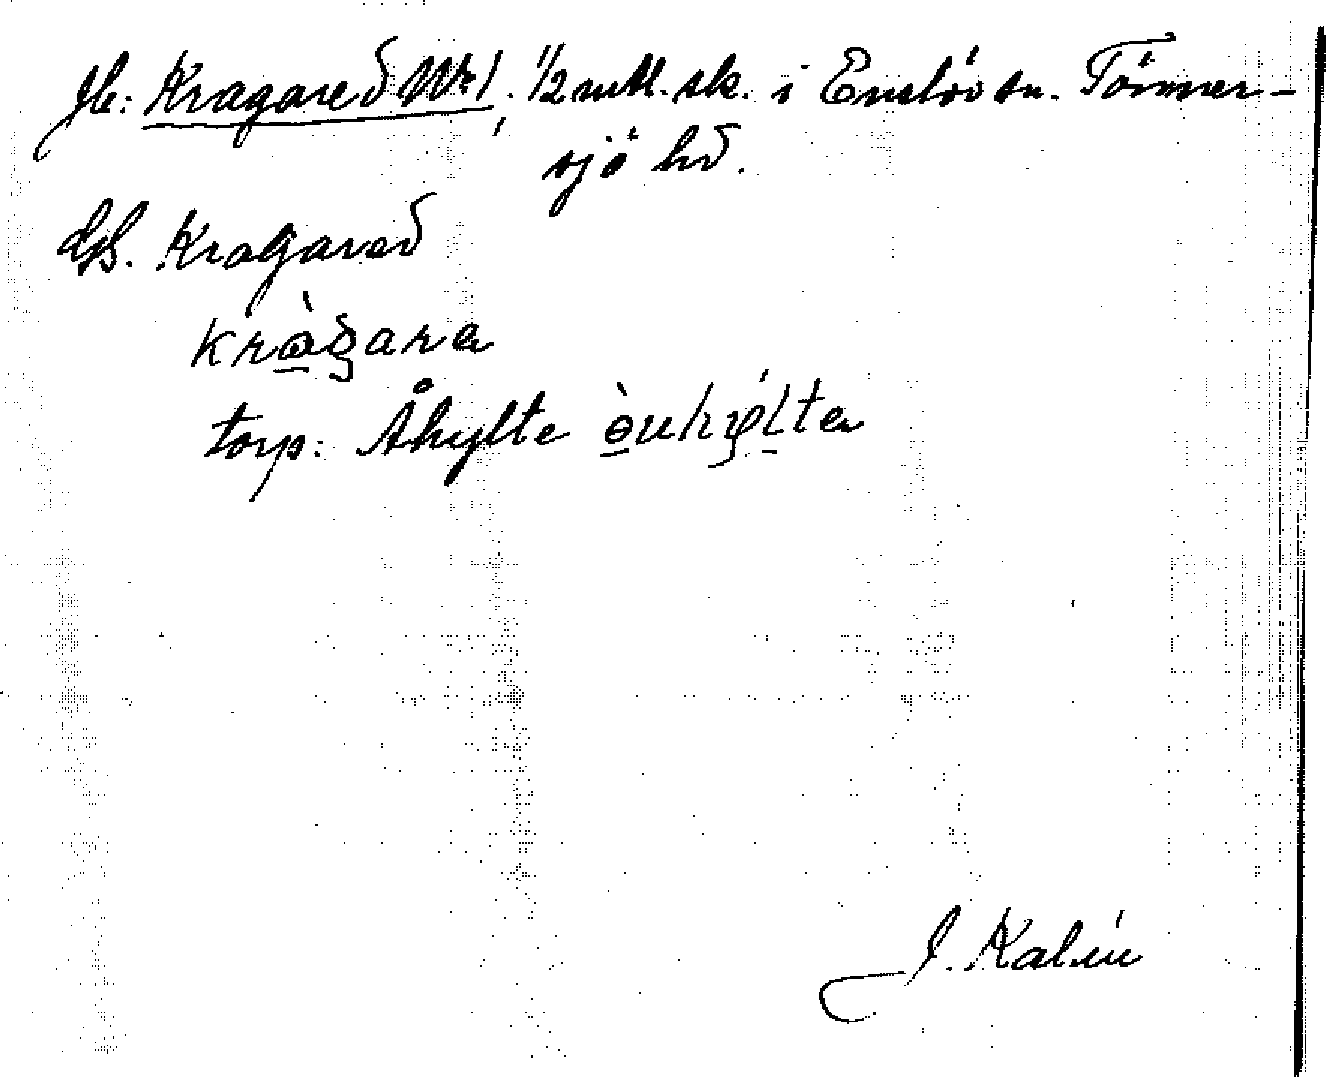 Jb: Kragared Nr 1, 1/2 mtl. sk. i Enslövs sn. Tönner-
sjö hd.
GS. Kragared
kràgara
torp: Åhylte
J. Kalén